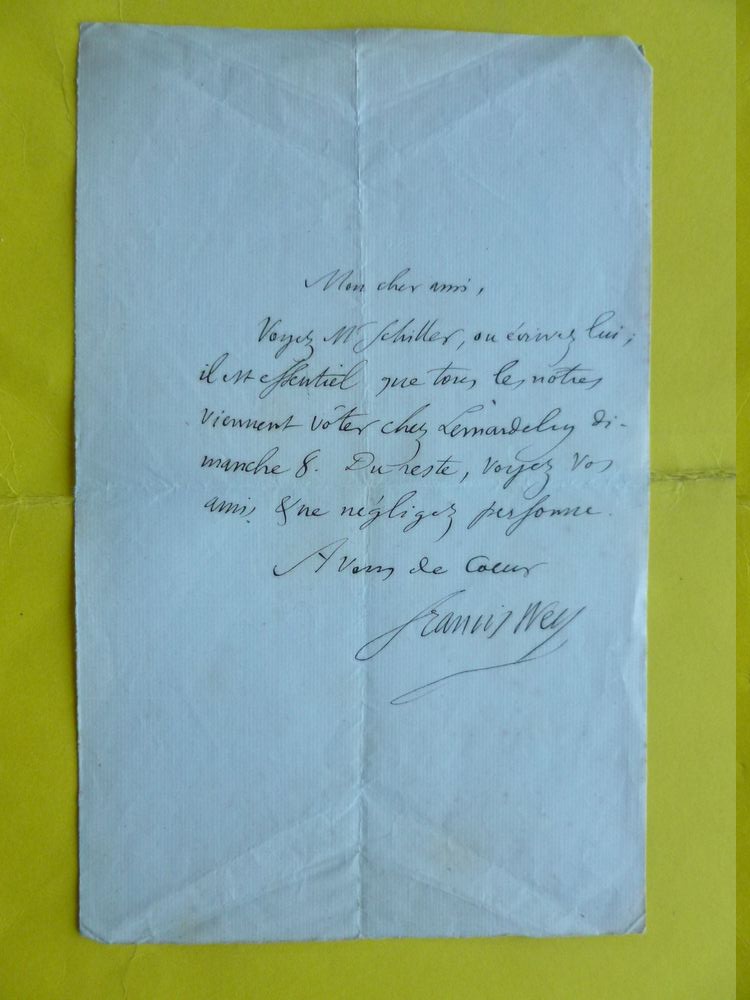 Mon cher ami,
Voyez Mr Schiller, ou écrivez lui ;
il est essentiel que tous les nôtres
viennent vôter chez Lemardeley di-
manche 8. Du reste, voyez vos
amis, & ne négligez personne.
A vous de Coeur
Francis Wey